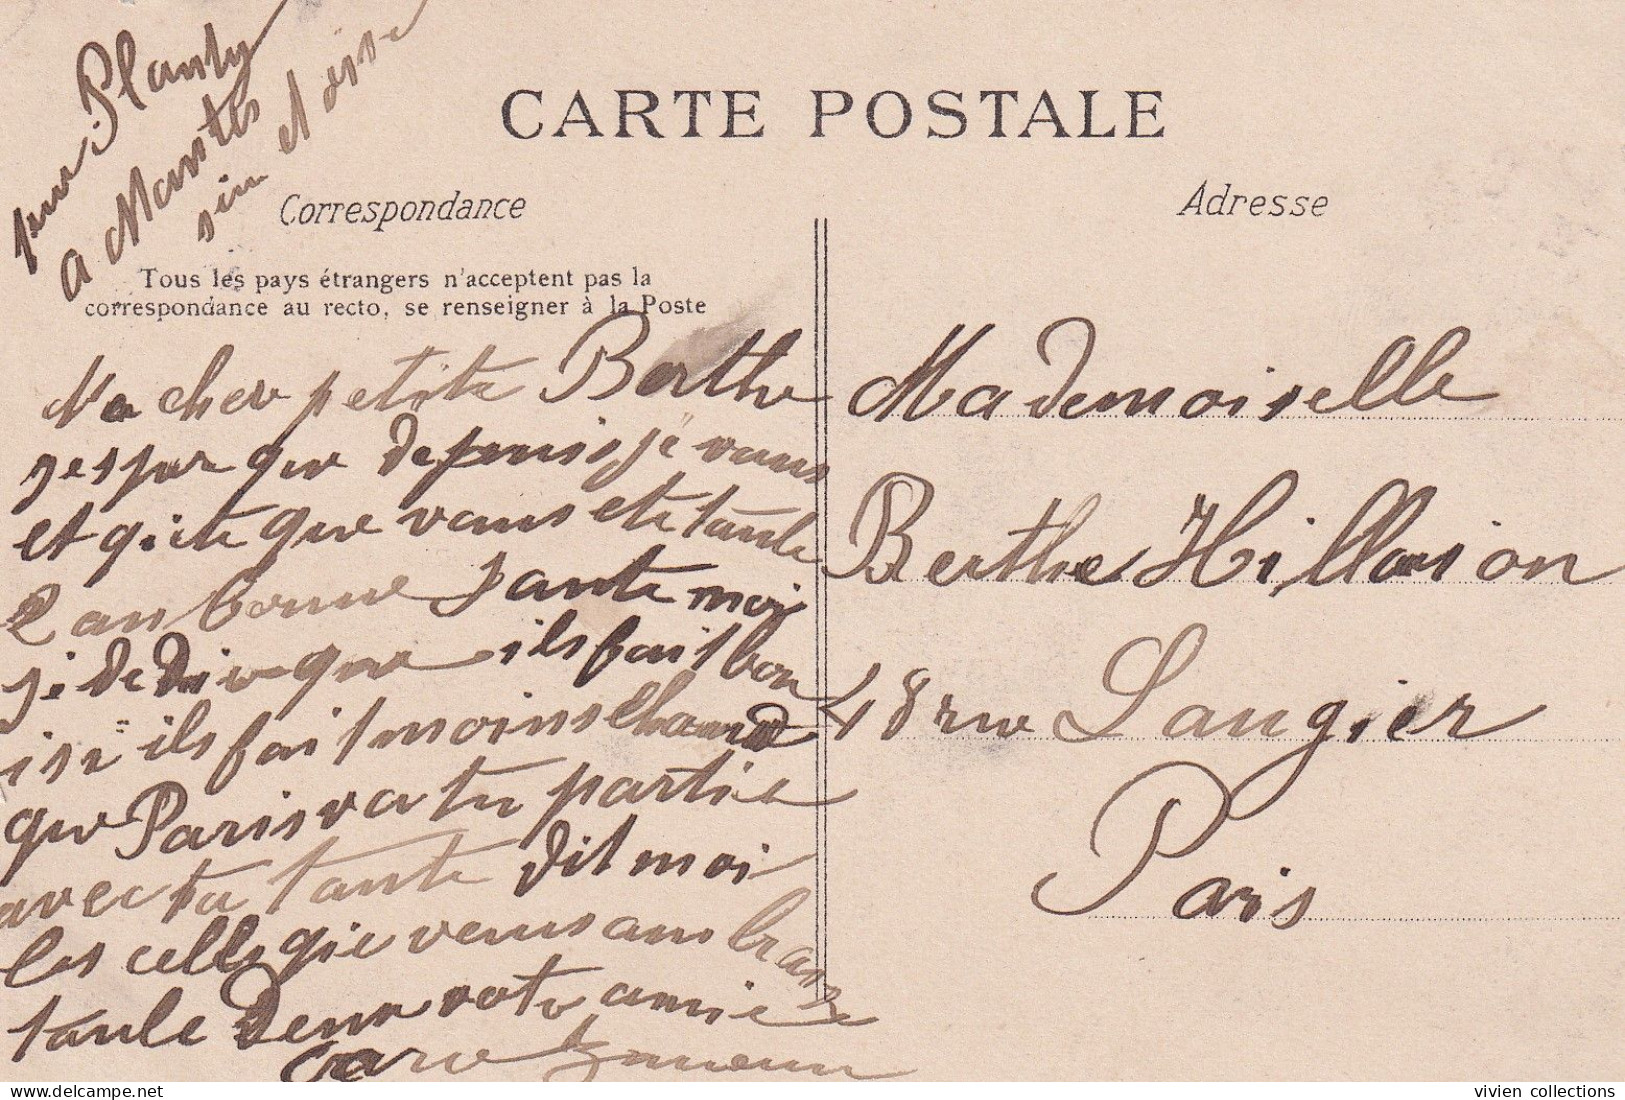 Planty
a Mantes
et oise
CARTE POSTALE
Correspondance
Adresse
Tous les pays étrangers n'acceptent pas la
correspondance au recto, se renseigner à la Poste
Ma cher petite Berthe
jespar que depuis je vous
et qite que vous ete toute
an bonne sante moi
je de dir que ils fait bon
isi ils fait moins chaud
que Paris va tu partir
avec ta tante dit moi
les celle gie vous anbrasse
toute deux votr amie
Mademoiselle
Berthe Hillarion
48 rue Laugier
Paris
vivien collections